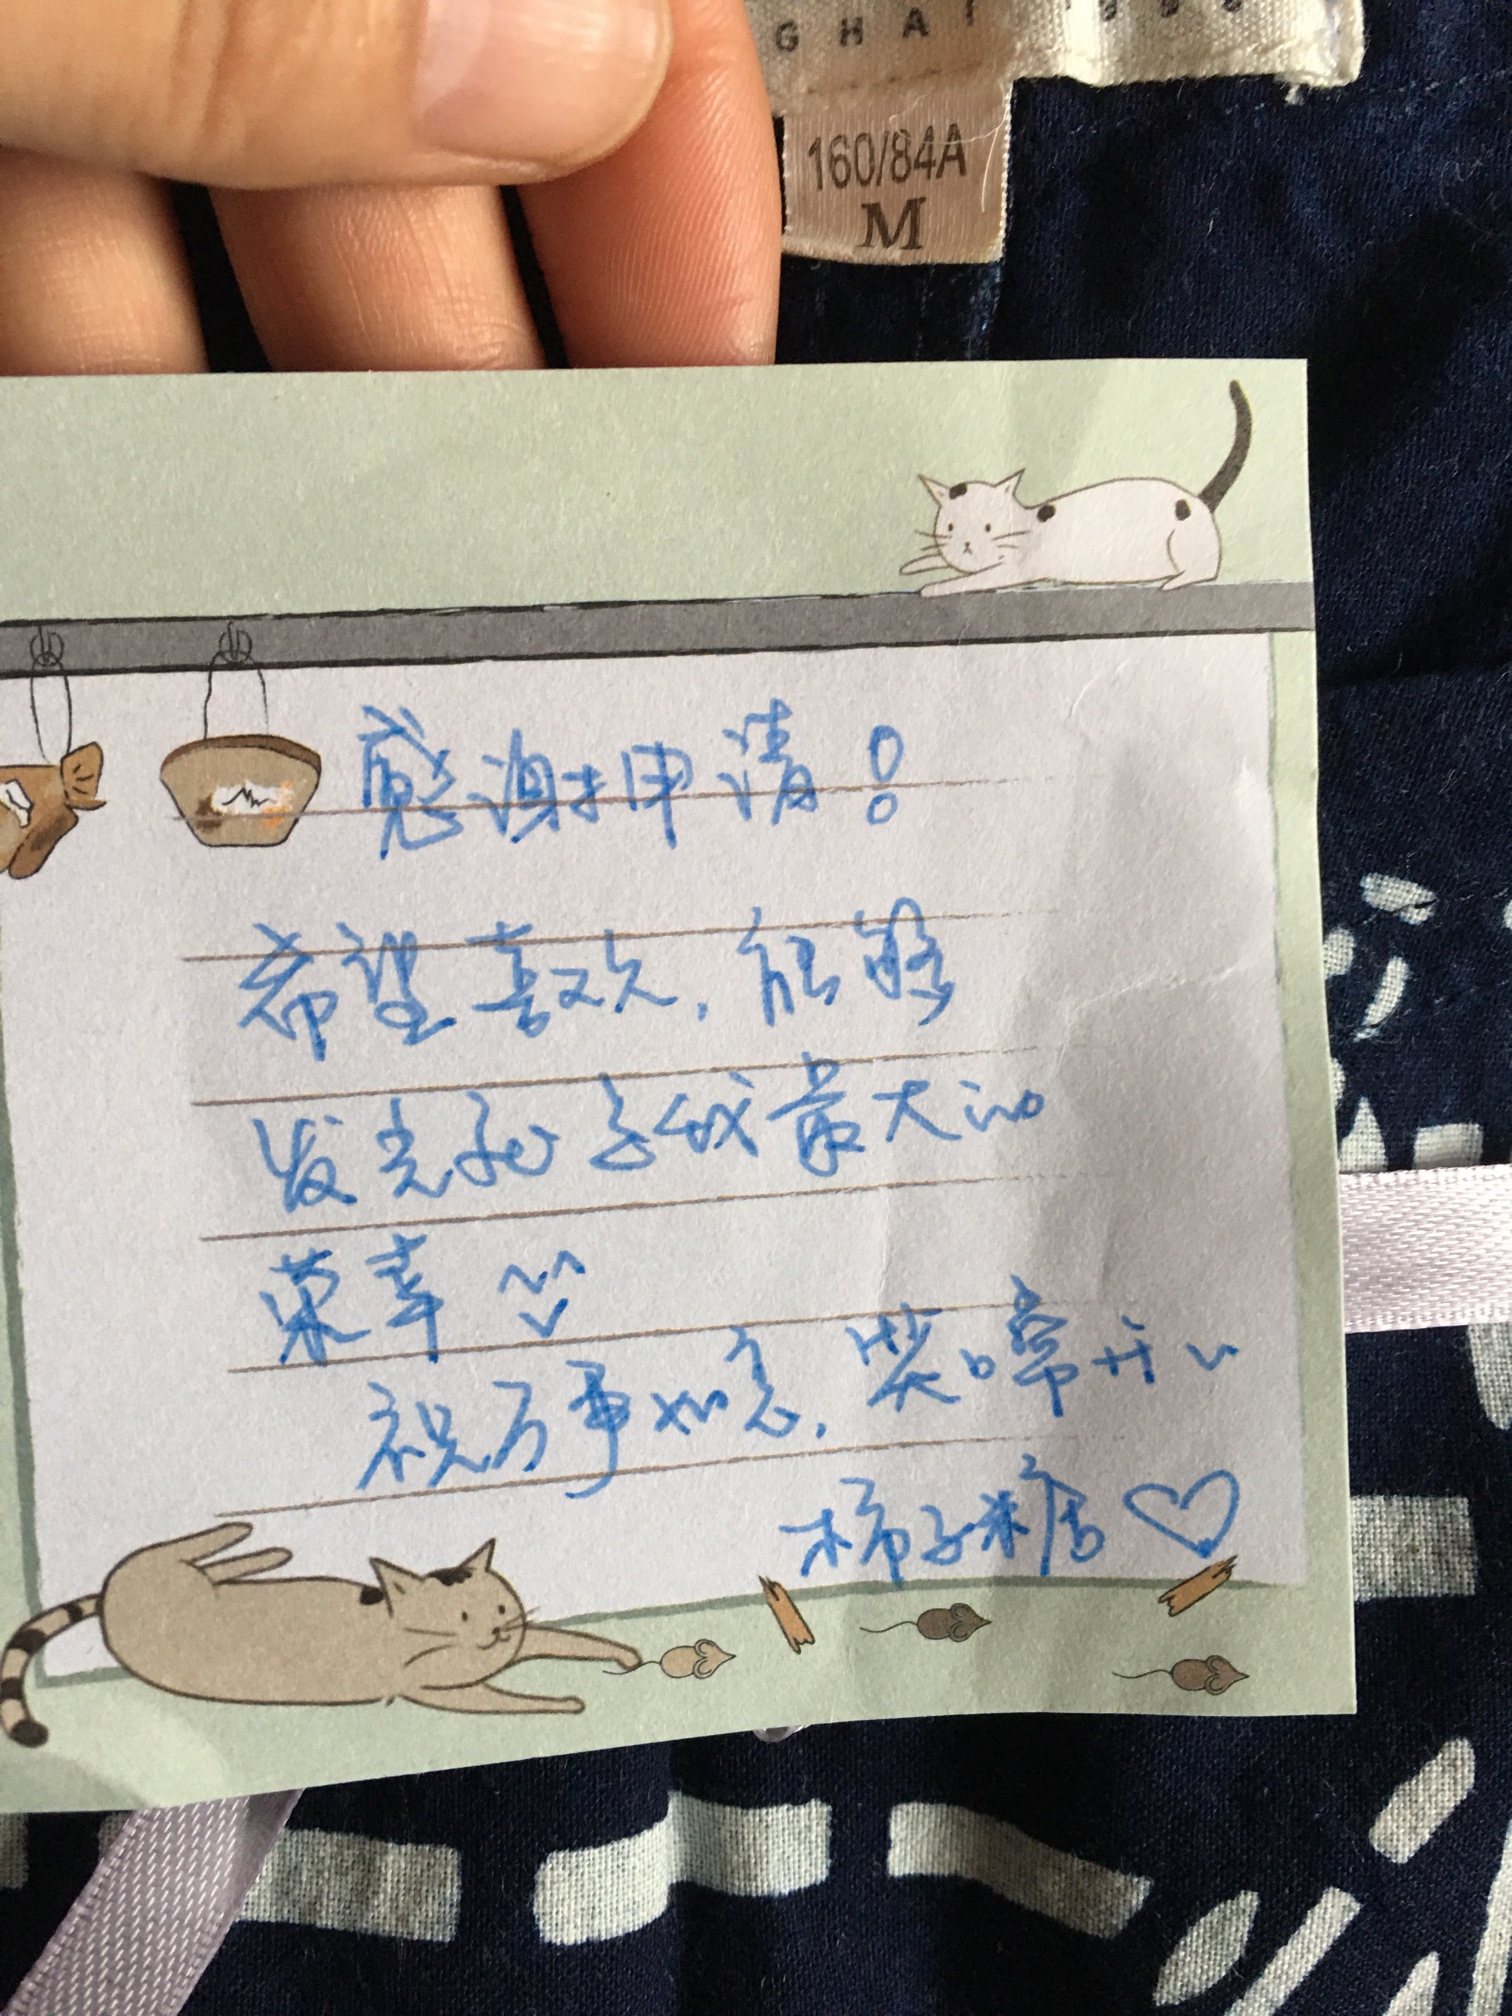 160/84A
M
感谢申请！
希望喜欢，能够
发光 我最大的
荣幸
祝万事如意，笑口常开~
柿子糖♡